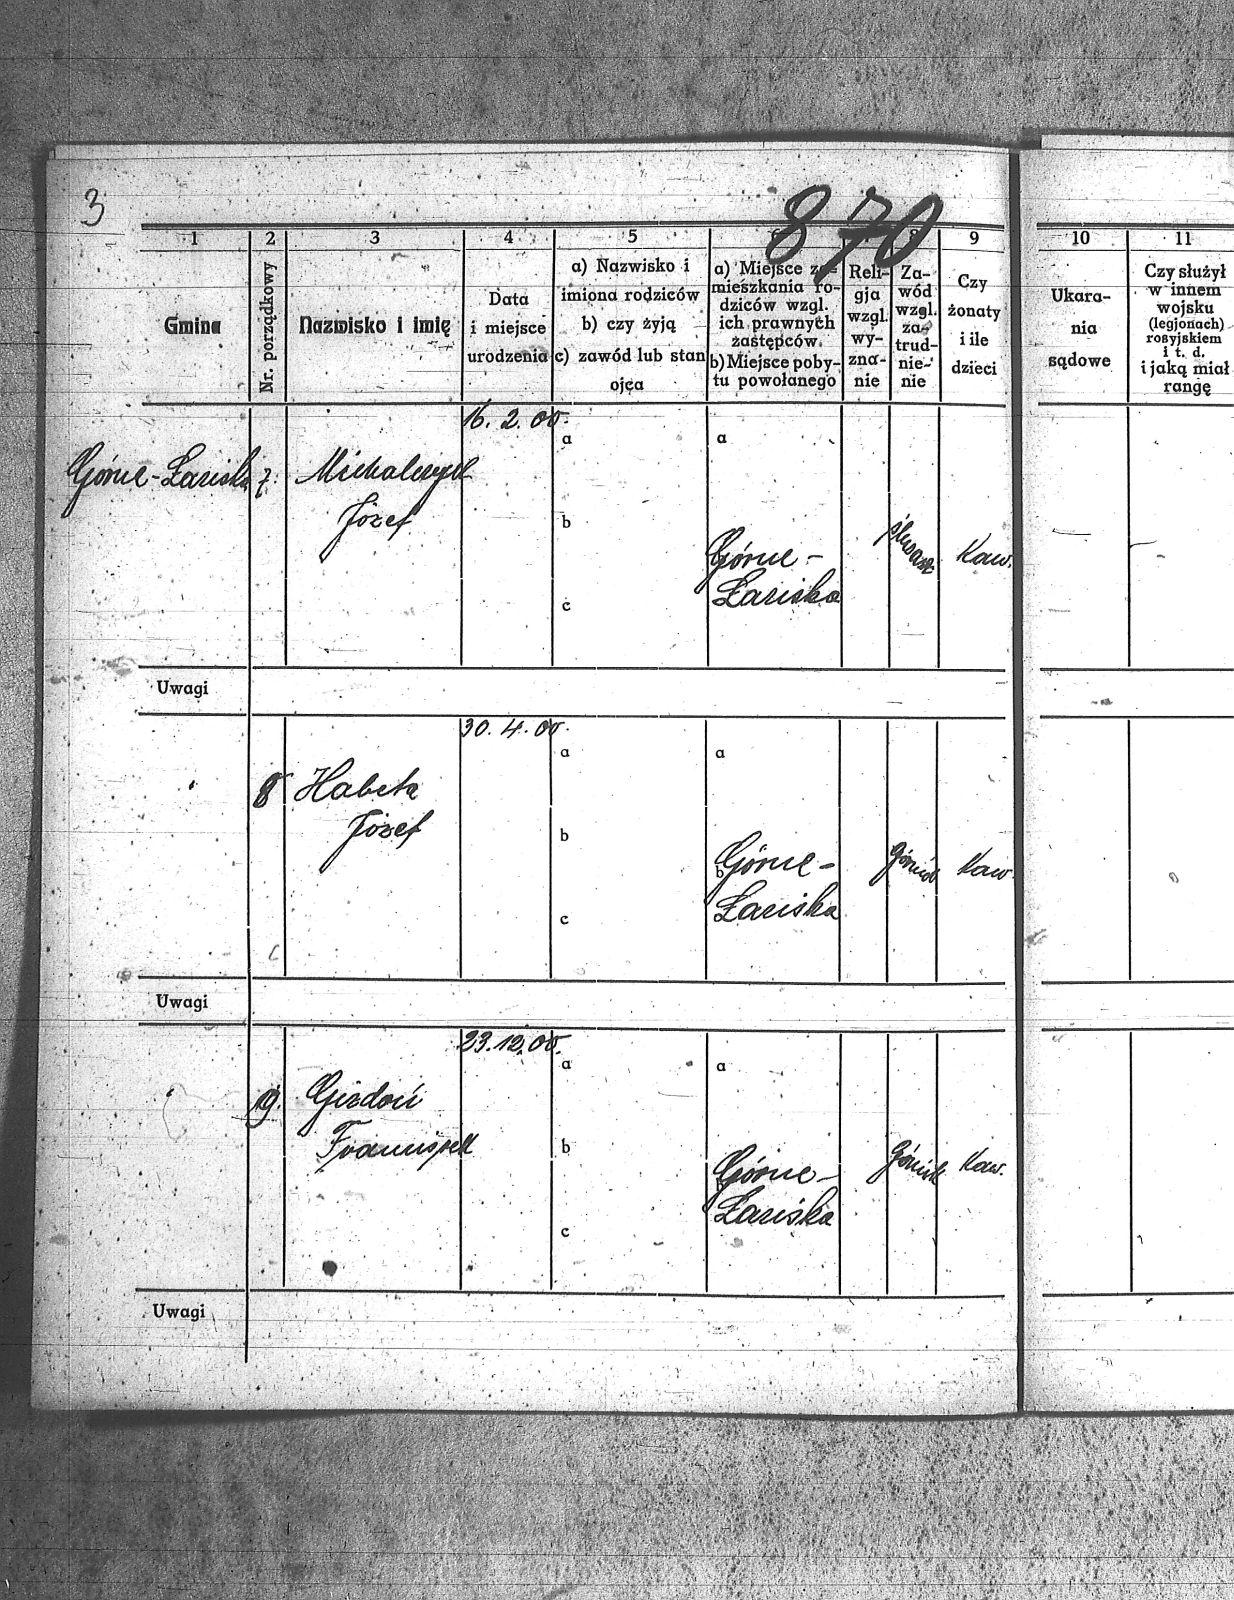 3
870
1
2
3
4
5
6
8
9
10
11
Gmina
Nr. porządkowy
Nazwisko i imię
Data
i miejsce
urodzenia
a) Nazwisko i
imiona rodziców
b) czy żyją
c) zawód lub stan
ojca
a) Miejsce za-
mieszkania ro-
dziców wzgl.
ich prawnych
zastępców.
b) Miejsce poby-
tu powołanego
Reli-
gja
wzgl.
wy-
zna-
nie
Za-
wód
wzgl.
za-
trud-
nie-
nie
Czy
żonaty
i ile
dzieci
Ukara-
nia
sądowe
Czy służył
w innem
wojsku
(legjonach)
rosyjskiem
i t. d.
i jaką miał
rangę
16. 2. 00.
a
a
Górne-Łaziska
7.
Michalczyk
Józef
b
Górne-
Łaziska
ślusarz
Kaw.
c
Uwagi
30. 4. 00.
a
a
8
Józef
b
b
Górne-
Łaziska
górnik
Kaw.
c
Uwagi
23. 12. 00.
a
a
9.
Gizdoń
Franciszek
b
b
Górne-
Łaziska
Górnik
Kaw.
c
Uwagi